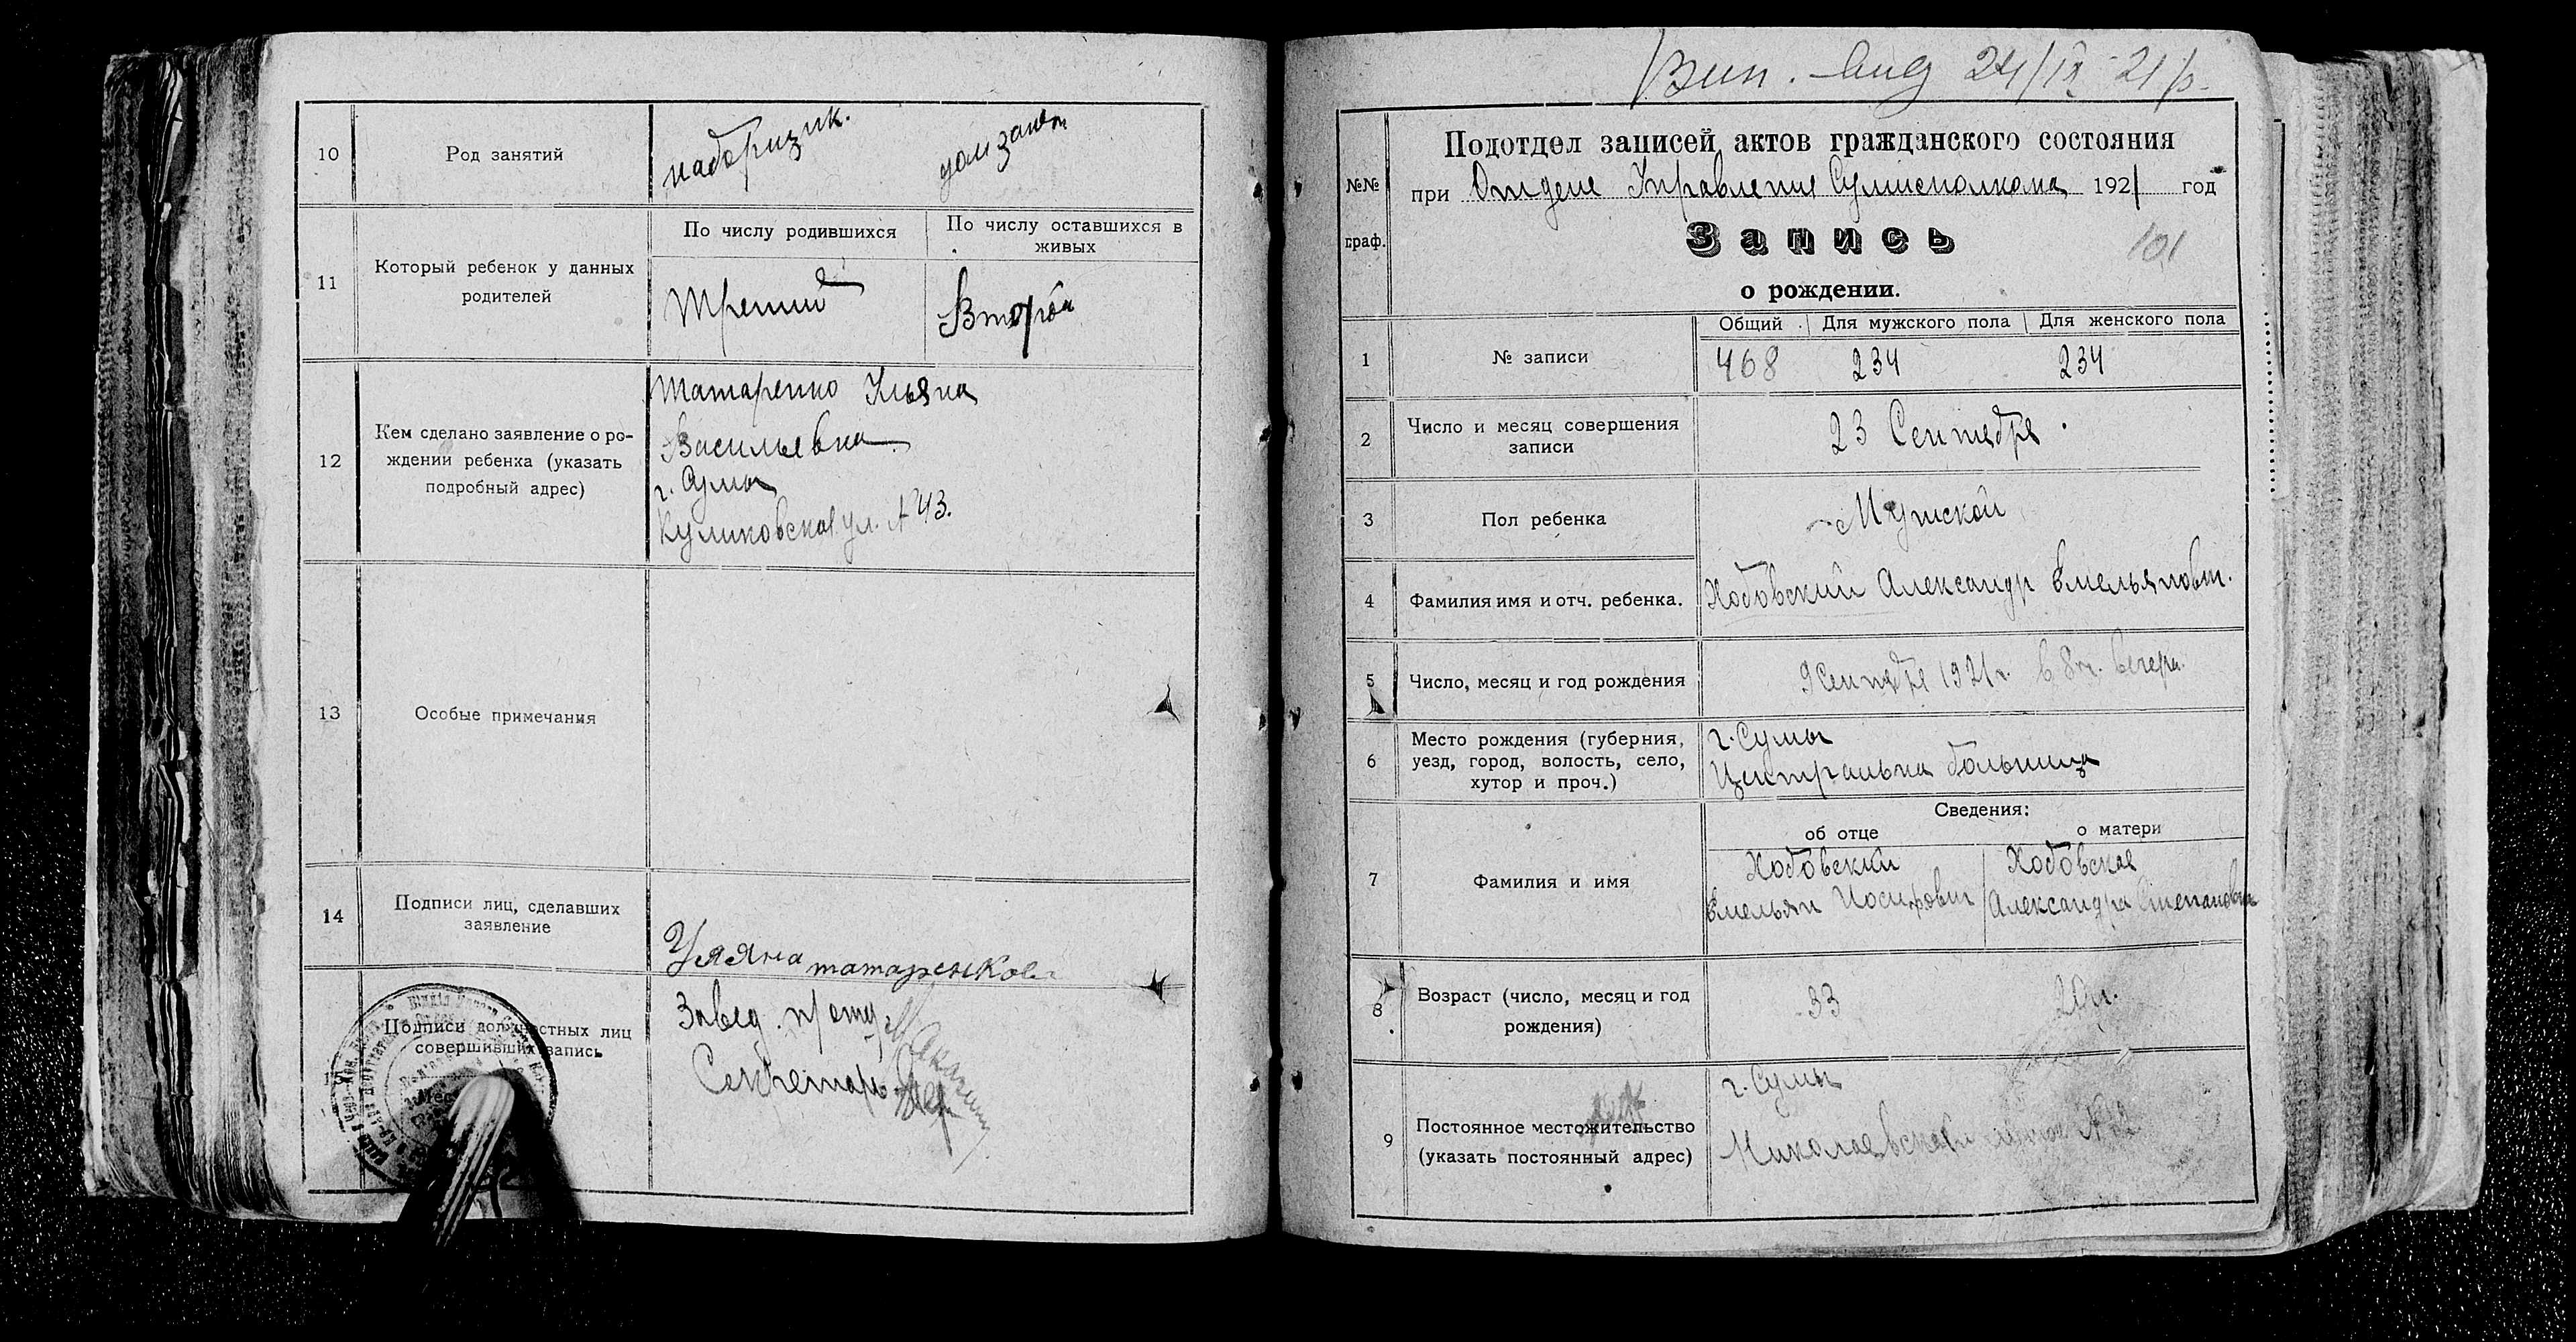 10
Род занятий
наборщик.
11
Который ребенок у данных
родителей
По числу родившихся
По числу оставшихся в
живых
Третий
Второй
12
Кем сделано заявление о ро-
ждении ребенка (указать
подробный адрес)
Татаренко Ульяна
Васильевна
г. Сумы
Куликовская ул. № 43.
13
Особые примечания
14
Подписи лиц, сделавших
заявление
Уляна татаренкова
Подписи должностных лиц
совершивших запись
Завед. п/отд.
Секретарь
24/IX 21 р.
№№
граф.
Подотдел записей актов гражданского состояния
при Отделе Управления Сумисполкома 1921 год
Запись
101
о рождении.
1
№ записи
Общий
Для мужского пола
Для женского пола
468
234
234
2
Число и месяц совершения
записи
23 Сентября
3
Пол ребенка
Мужской
4
Фамилия имя и отч. ребенка.
Хобовский Александр Емельянович.
5
Число, месяц и год рождения
9 Сентября 1921 г. в 8 ч. вечера.
6
Место рождения (губерния,
уезд, город, волость, село,
хутор и проч.)
г. Сумы
Центральна больница
7
Фамилия и имя
Сведения:
об отце
о матери
Хобовский
Емельян Иосифович
Хобовская
Александра Степановна
8
Возраст (число, месяц и год
рождения)
33
20 л.
9
Постоянное местожительство
(указать постоянный адрес)
г. Сумы
Николаевская